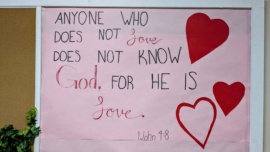 ANYONE WHO
DOES NOT Love
DOES NOT KNOW
God, FOR HE IS
Love.
1 John 4:8